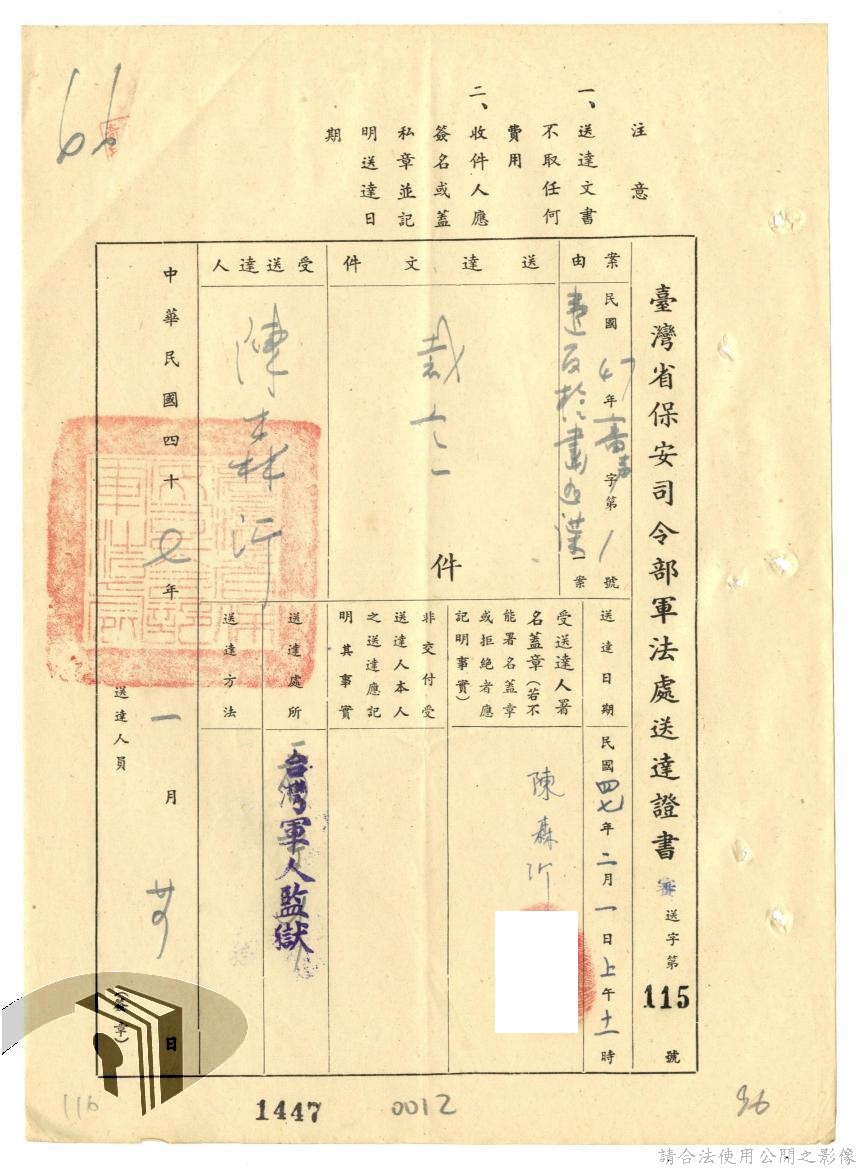 注意
一、送達文書
不取任何
費用
二、收件人應
簽名或蓋
私章並記
明送達日
期
臺灣省保安司令部軍法處送達證書 審送字第115號
案由
民國47年審聲字第1號
違反於書道漢一案
送達文件
裁定
件
受送達人
陳森沂
送達日期
民國四七年二月一日上午十一時
受送達人署
名蓋章(若不
能署名蓋章
或拒絕者應
記明事實)
陳森沂
非交付受
送達人本人
之送達應記
明其事實
送達處所
台灣軍人監獄
送達方法
中華民國四十七年一月廿 日
送達人員
(簽章)
66
116
1447
0012
96
請合法使用公開之影像